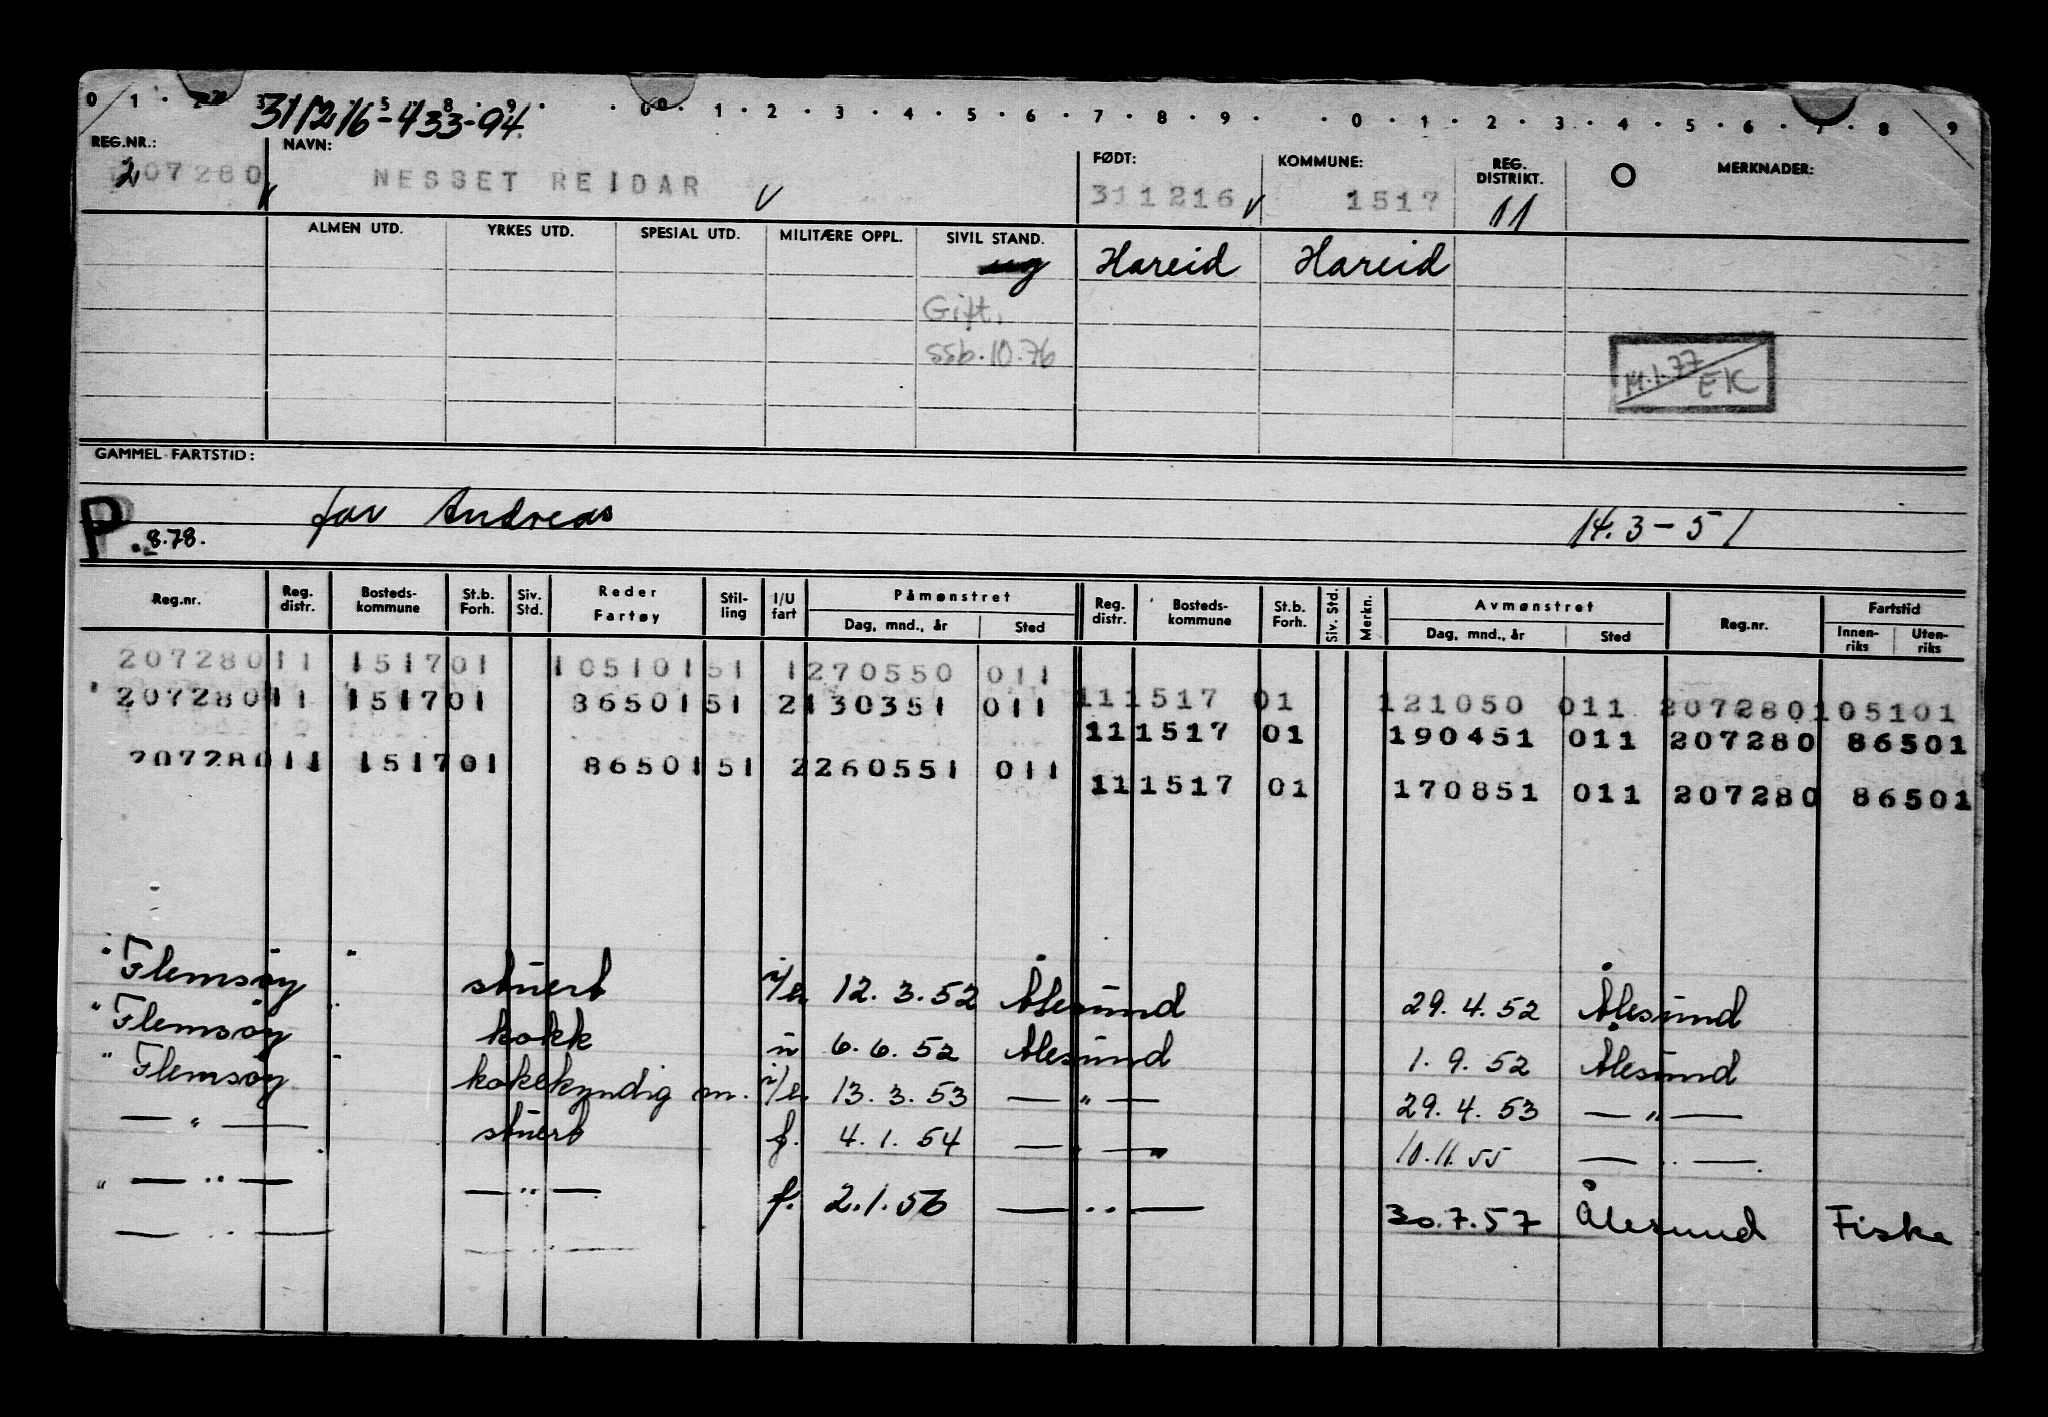 0 1 · 2 · 3 · 5 · 8 · 9 · · 0 · 1 · 2 · 3 · 4 · 5 · 6 · 7 · 8 · 9 · · 0 · 1 · 2 · 3 · 4 · 5 · 6 · 7 · 8 9
311216-433-94
REG.NR.: NAVN: FØDT: KOMMUNE: REG. DISTRIKT. O MERKNADER:
207280 NESSET REIDAR 311216 1517 11
ALMEN UTD. YRKES UTD. SPESIAL UTD. MILITÆRE OPPL. SIVIL STAND.
ug Hareid Hareid
Gift.
ssb.10.76
14.1.77 EK
GAMMEL FARTSTID:
P. 8.78. far Andreas 14.3-51
Reg.nr. Reg. distr. Bosteds-kommune St.b. Forh. Siv. Std. Reder Fartøy Stil-ling I/U fart Påmønstret Dag, mnd., år Sted Reg. distr. Bosteds-kommune St.b. Forh. Siv. Std. Merkn. Avmønstret Dag, mnd., år Sted Reg.nr. Fartstid Innen-riks Uten-riks
207280 11 1517 01 105101 51 1 270550 011
11 1517 01 121050 011 207280 105101
207280 11 1517 01 86501 51 2 130351 011
11 1517 01 190451 011 207280 86501
207280 11 1517 01 86501 51 2 260551 011
11 1517 01 170851 011 207280 86501
" Flemsøy " stuert i/u 12. 3. 52 Ålesund 29. 4. 52 Ålesund
" Flemsøy " kokk u 6. 6. 52 Ålesund 1. 9. 52 Ålesund
" Flemsøy " kokekyndig m. i/u 13. 3. 53 — " — 29. 4. 53 — " —
— " — stuert f. 4. 1. 54 — " — 10.11.55 — " —
" — " — — " — f. 2.1.56 — " — 30.7.57 Ålesund Fiske
— " — — " —